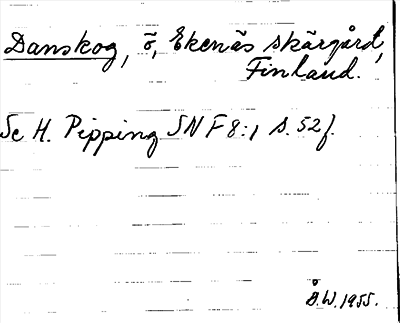 Danskog, ö, Ekenäs skärgård,
Finland.
Se H. Pipping SNF 8:1 s. 52 f.
Å.W. 1955.